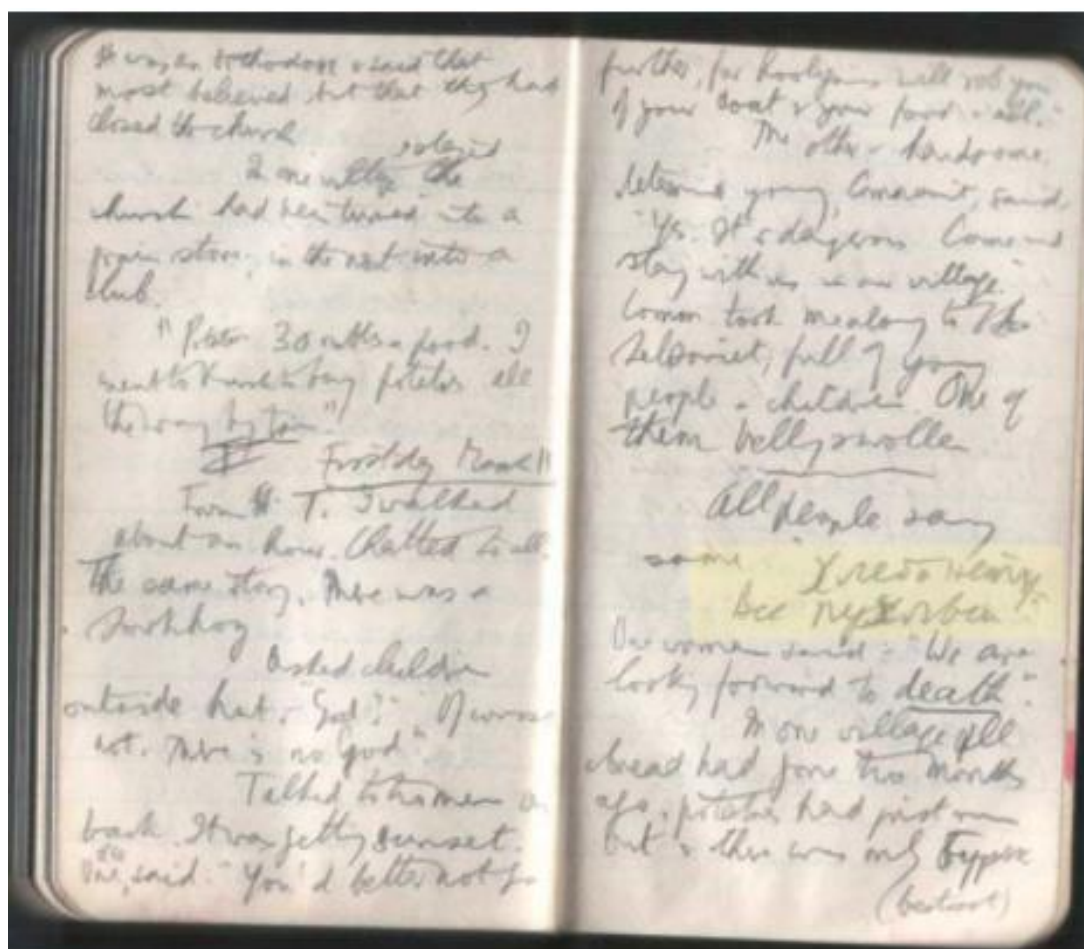 It was an Orthodox & said that
most believed but that they had
closed the church
In one village the
church had been turned into a
grain store, in the next into a
club.
30 roubles a pood. I
went to buy potatoes all
the way by
Frost
From T. I walked
about an hour. Chatted to all.
The same story. There was a
Asked children
outside hut, "God?" Of course
not. There is no god".
Talked to two men
back. It was getting sunset.
One said: "You'd better not go
further, for hooligans will rob you
of your coat & your food & all."
The other - handsome,
young, Communist, said.
"Yes. It's dangerous. Come and
stay with us in our village."
took me along to
full of young
people & children. One of
them belly swollen
All people say
same "Хлеба
все
One woman said - "We are
looking forward to death".
In one village all
bread had gone two months
ago, potatoes had just run
but & there was only буряк
(beetroot)